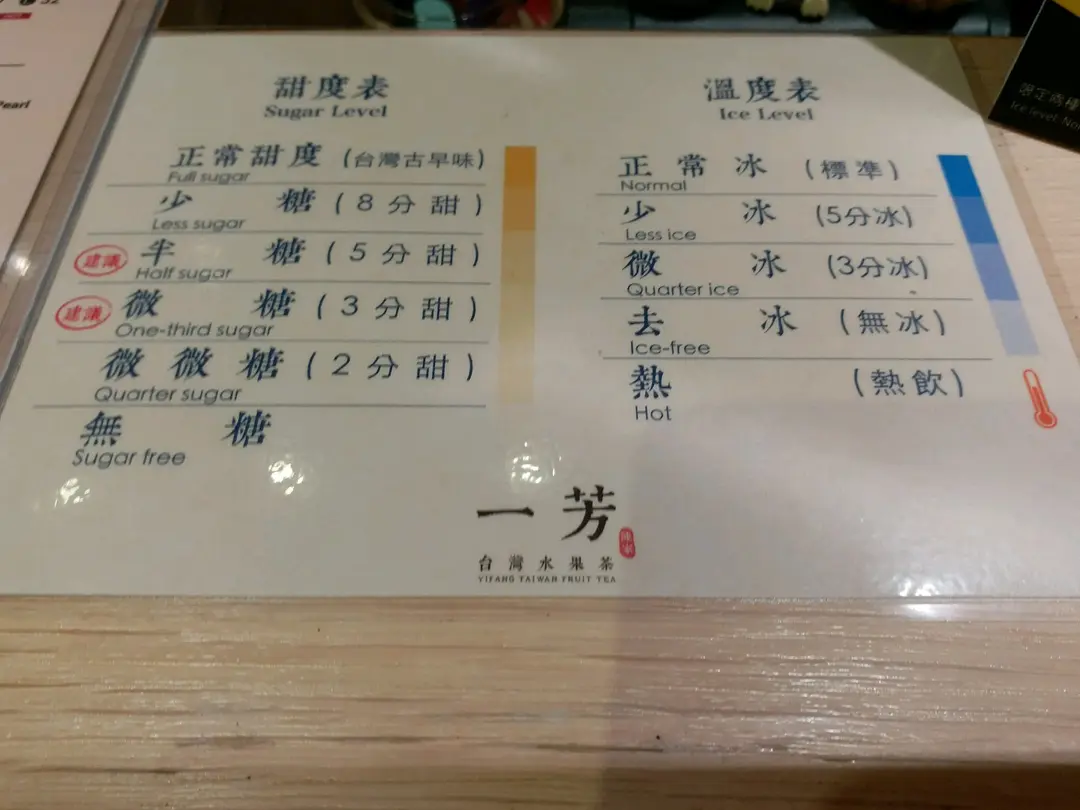 Pearl
甜度表
Sugar Level
正常甜度 (台灣古早味)
Full sugar
少 糖 (8分甜)
Less sugar
建議 半 糖 (5分甜)
Half sugar
建議 微 糖 (3分甜)
One-third sugar
微微糖 (2分甜)
Quarter sugar
無 糖
Sugar free
溫度表
Ice Level
正常冰 (標準)
Normal
少 冰 (5分冰)
Less ice
微 冰 (3分冰)
Quarter ice
去 冰 (無冰)
Ice-free
熱 (熱飲)
Hot
一芳
台灣水果茶
YIFANG TAIWAN FRUIT TEA
限定
Ice level